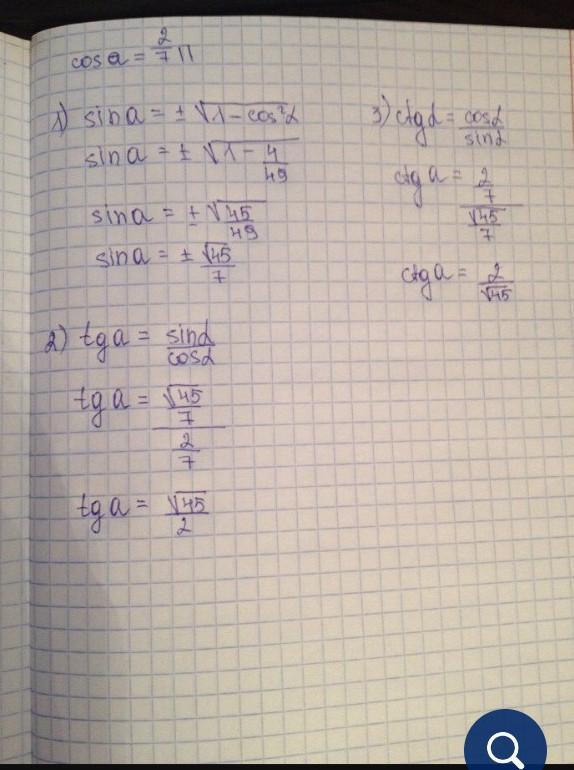 cos a = 2/7 II
1) sin a = ± √(1 - cos²α)
sin a = ± √(1 - 4/49)
sin a = ± √(45/49)
sin a = ± √45/7
2) tg a = sinα/cosα
tg a = (√45/7)/(2/7)
tg a = √45/2
3) ctg α = cosα/sinα
ctg a = (2/7)/(√45/7)
ctg a = 2/√45